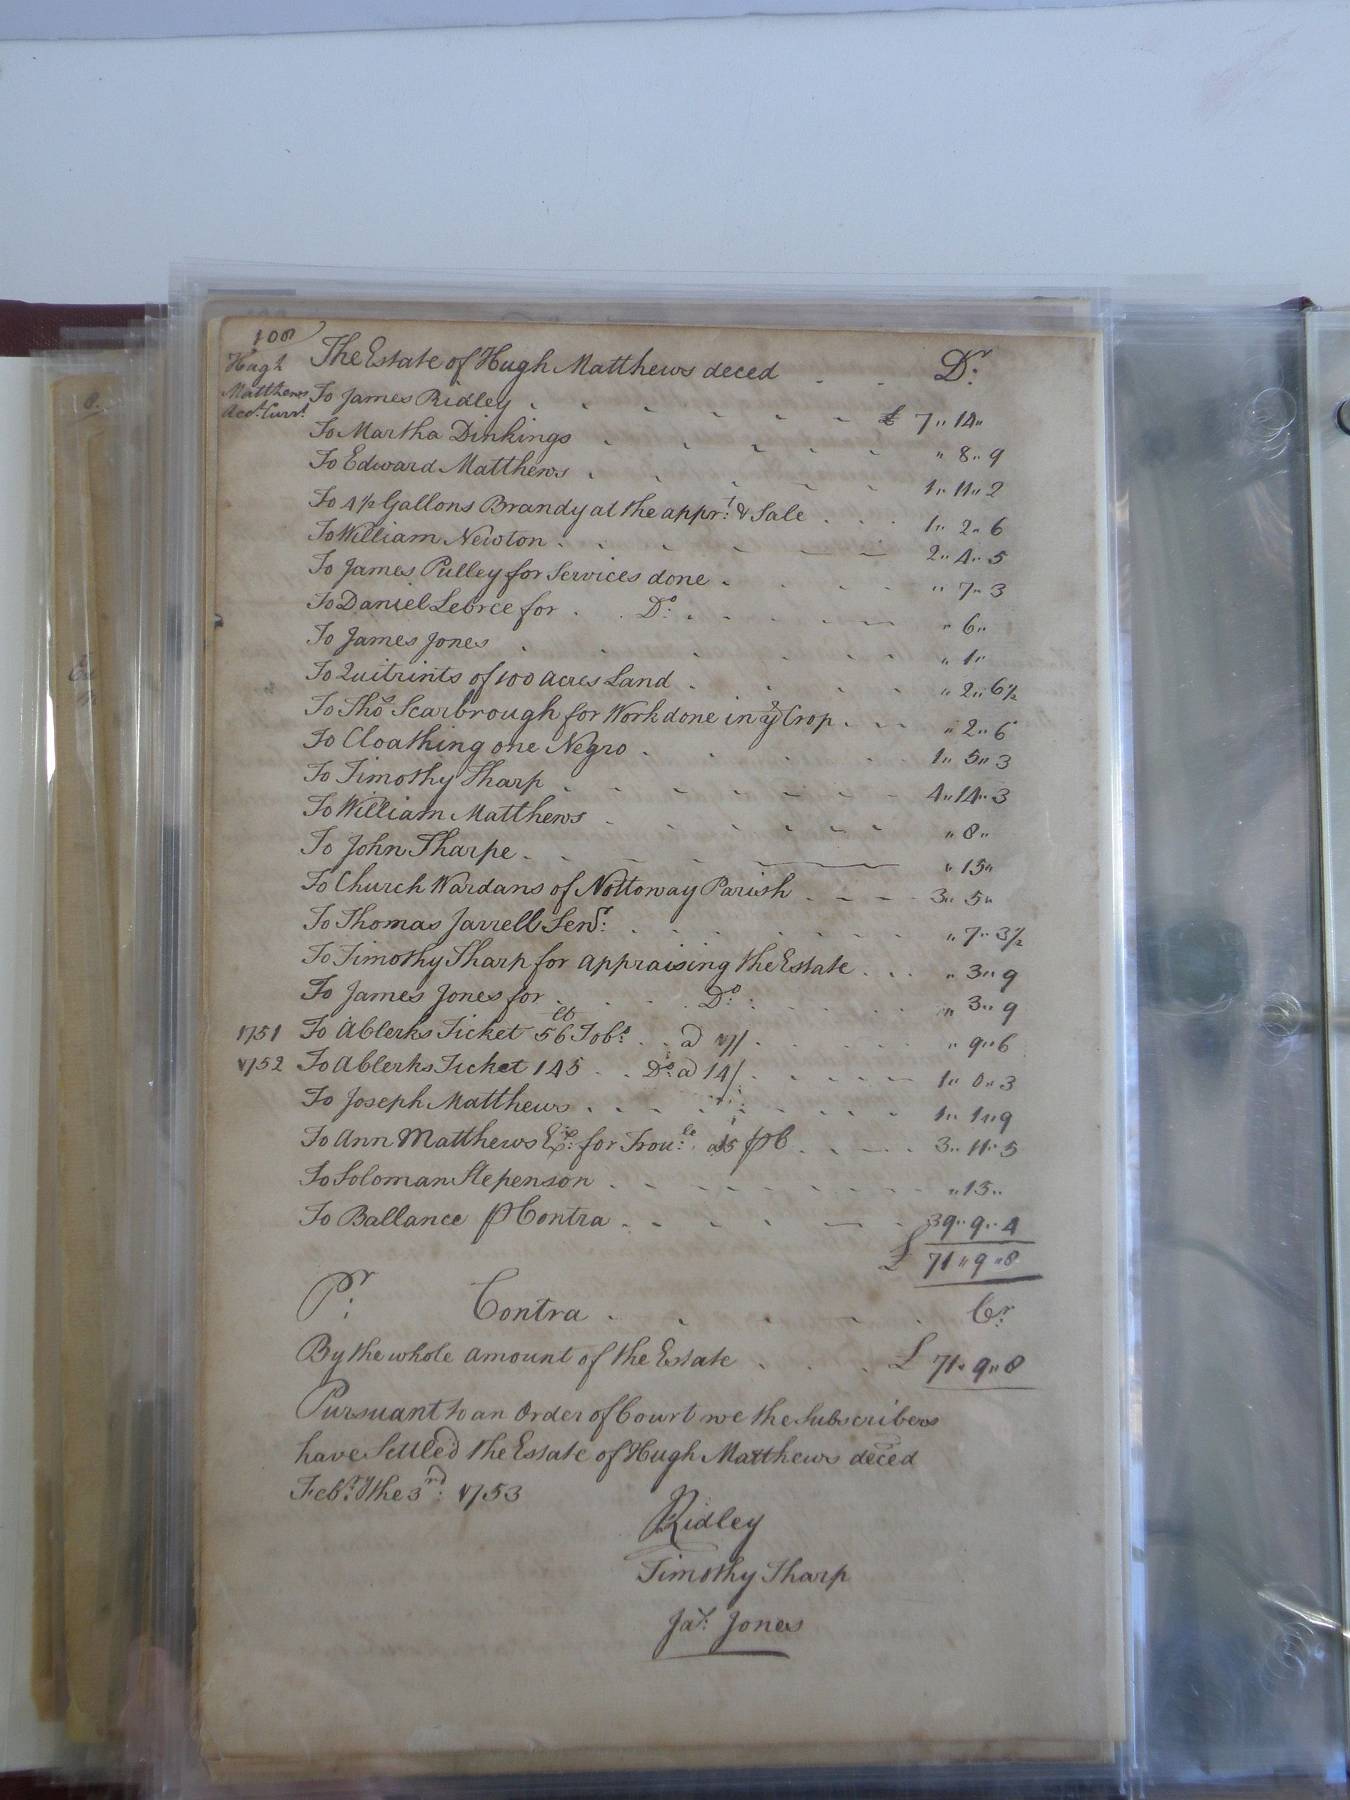 108
Hugh
Matthews
Acot. Curr.t
The Estate of Hugh Matthews deced . . Dr.
To James Ridley . . . . . £ 7 " 14 "
To Martha Dinkings . . . . . " 8 " 9
To Edward Matthews . . . . . 1 " 11 " 2
To 4½ Gallons Brandy at the appr.t & Sale . . . 1 " 2 " 6
To William Newton . . . . . 2 " 4 " 5
To James Pulley for Services done . . . . " 7 " 3
To Daniel Leorce for . . Do. . . . . " 6 "
To James Jones . . . . . " 1 "
To Quitrints of 100 acres Land . . . . " 2 " 6½
To Thos Scarbrough for Work done in ye Crop . . . " 2 " 6
To Cloathing one Negro . . . . 1 " 5 " 3
To Timothy Sharp . . . . . 4 " 14 " 3
To William Matthews . . . . . " 8 "
To John Sharpe . . . . " 15 "
To Church Wardans of Nottoway Parish . . . . 3 " 5 "
To Thomas Jarrell Senr. . . . . " 7 " 3½
To Timothy Sharp for appraising the Estate . . . " 3 " 9
To James Jones for . . . . Do. . . . . " 3 " 9
1751 To a Clerks Ticket 56 lb Tobo. . . a 17/ . . . . " 9 " 6
1752 To a Clerks Ticket 145 . . Do. a 14/ . . . . 1 " 0 " 3
To Joseph Matthews . . . . . 1 " 1 " 9
To Ann Matthews Ex. for Trou.le a 5 p C . . . . 3 " 11 " 5
To Soloman Stepenson . . . . . " 15 "
To Ballance p Contra . . . . 39 " 9 " 4
£ 71 " 9 " 8
Pr. Contra . . . . Cr.
By the whole amount of the Estate . . . £ 71 " 9 " 8
Pursuant to an Order of Court we the Subscribers
have Settled the Estate of Hugh Matthews deced
Feb.ry the 3rd. 1753
Ridley
Timothy Sharp
Jas. Jones